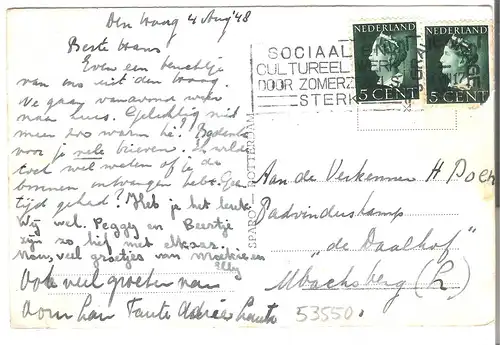 Den Haag 4 Aug '48
Beste Hans
Even een berichtje
van ons uit den Haag.
We gaan vanavond weer
naar huis. Gelukkig niet
meer zoo warm hè! Bedankt
voor je vele brieven. Ik wilde
toch wel weten of je de
bonnen ontvangen hebt. Goe
tijd gehad? Heb je het leuk?
Wij wel. Peggy en Beertje
zijn zo lief met elkaar.
Nou, veel groetjes van Moekie en
Elly
Ook veel groeten van
oom Han Tante
SOCIAAL
CULTUREEL WERK
DOOR ZOMERZ
STERK
NEDERLAND
5 CENT
NEDERLAND
5 CENT
SPARO ROTTERDAM
Aan de Verkenner H Poen
Padvinderskamp
"de Daalhof"
Ubachsberg (L)
53550